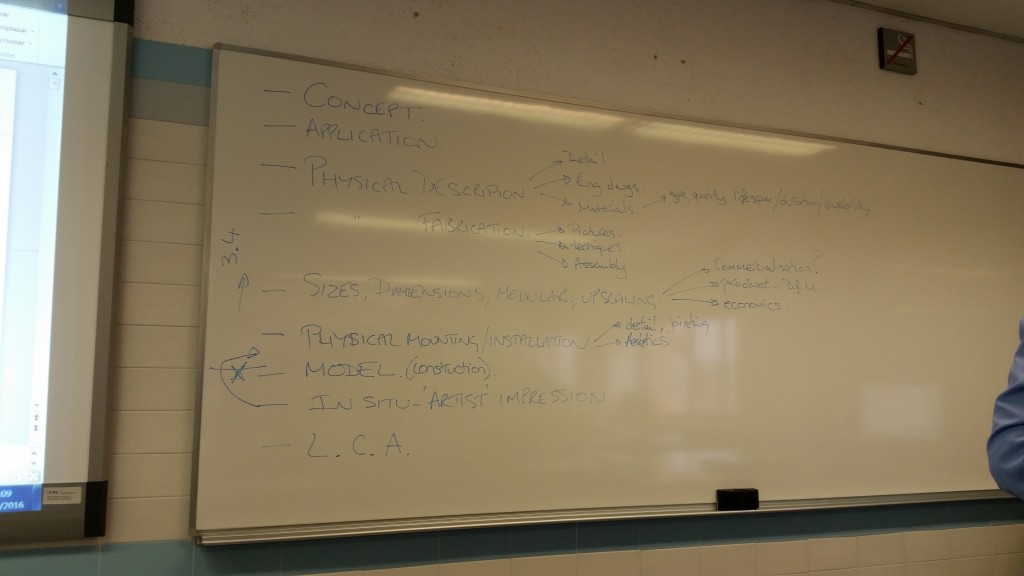 — CONCEPT.
— APPLICATION
— PHYSICAL DESCRIPTION
Detail
Eng dwgs
Materials → type, quantity, lifespan/duration/durability
— " FABRICATION.
Pictures.
techniques
Assembly
3.4
— SIZES, DIMENSIONS, MODULAR, UPSCALING
Commercialisation?
product
economics
— PHYSICAL MOUNTING/INSTALLATION
detail, binding
— MODEL. (construction).
— IN SITU - 'ARTIST' IMPRESSION
— L. C. A.
:09
/2016